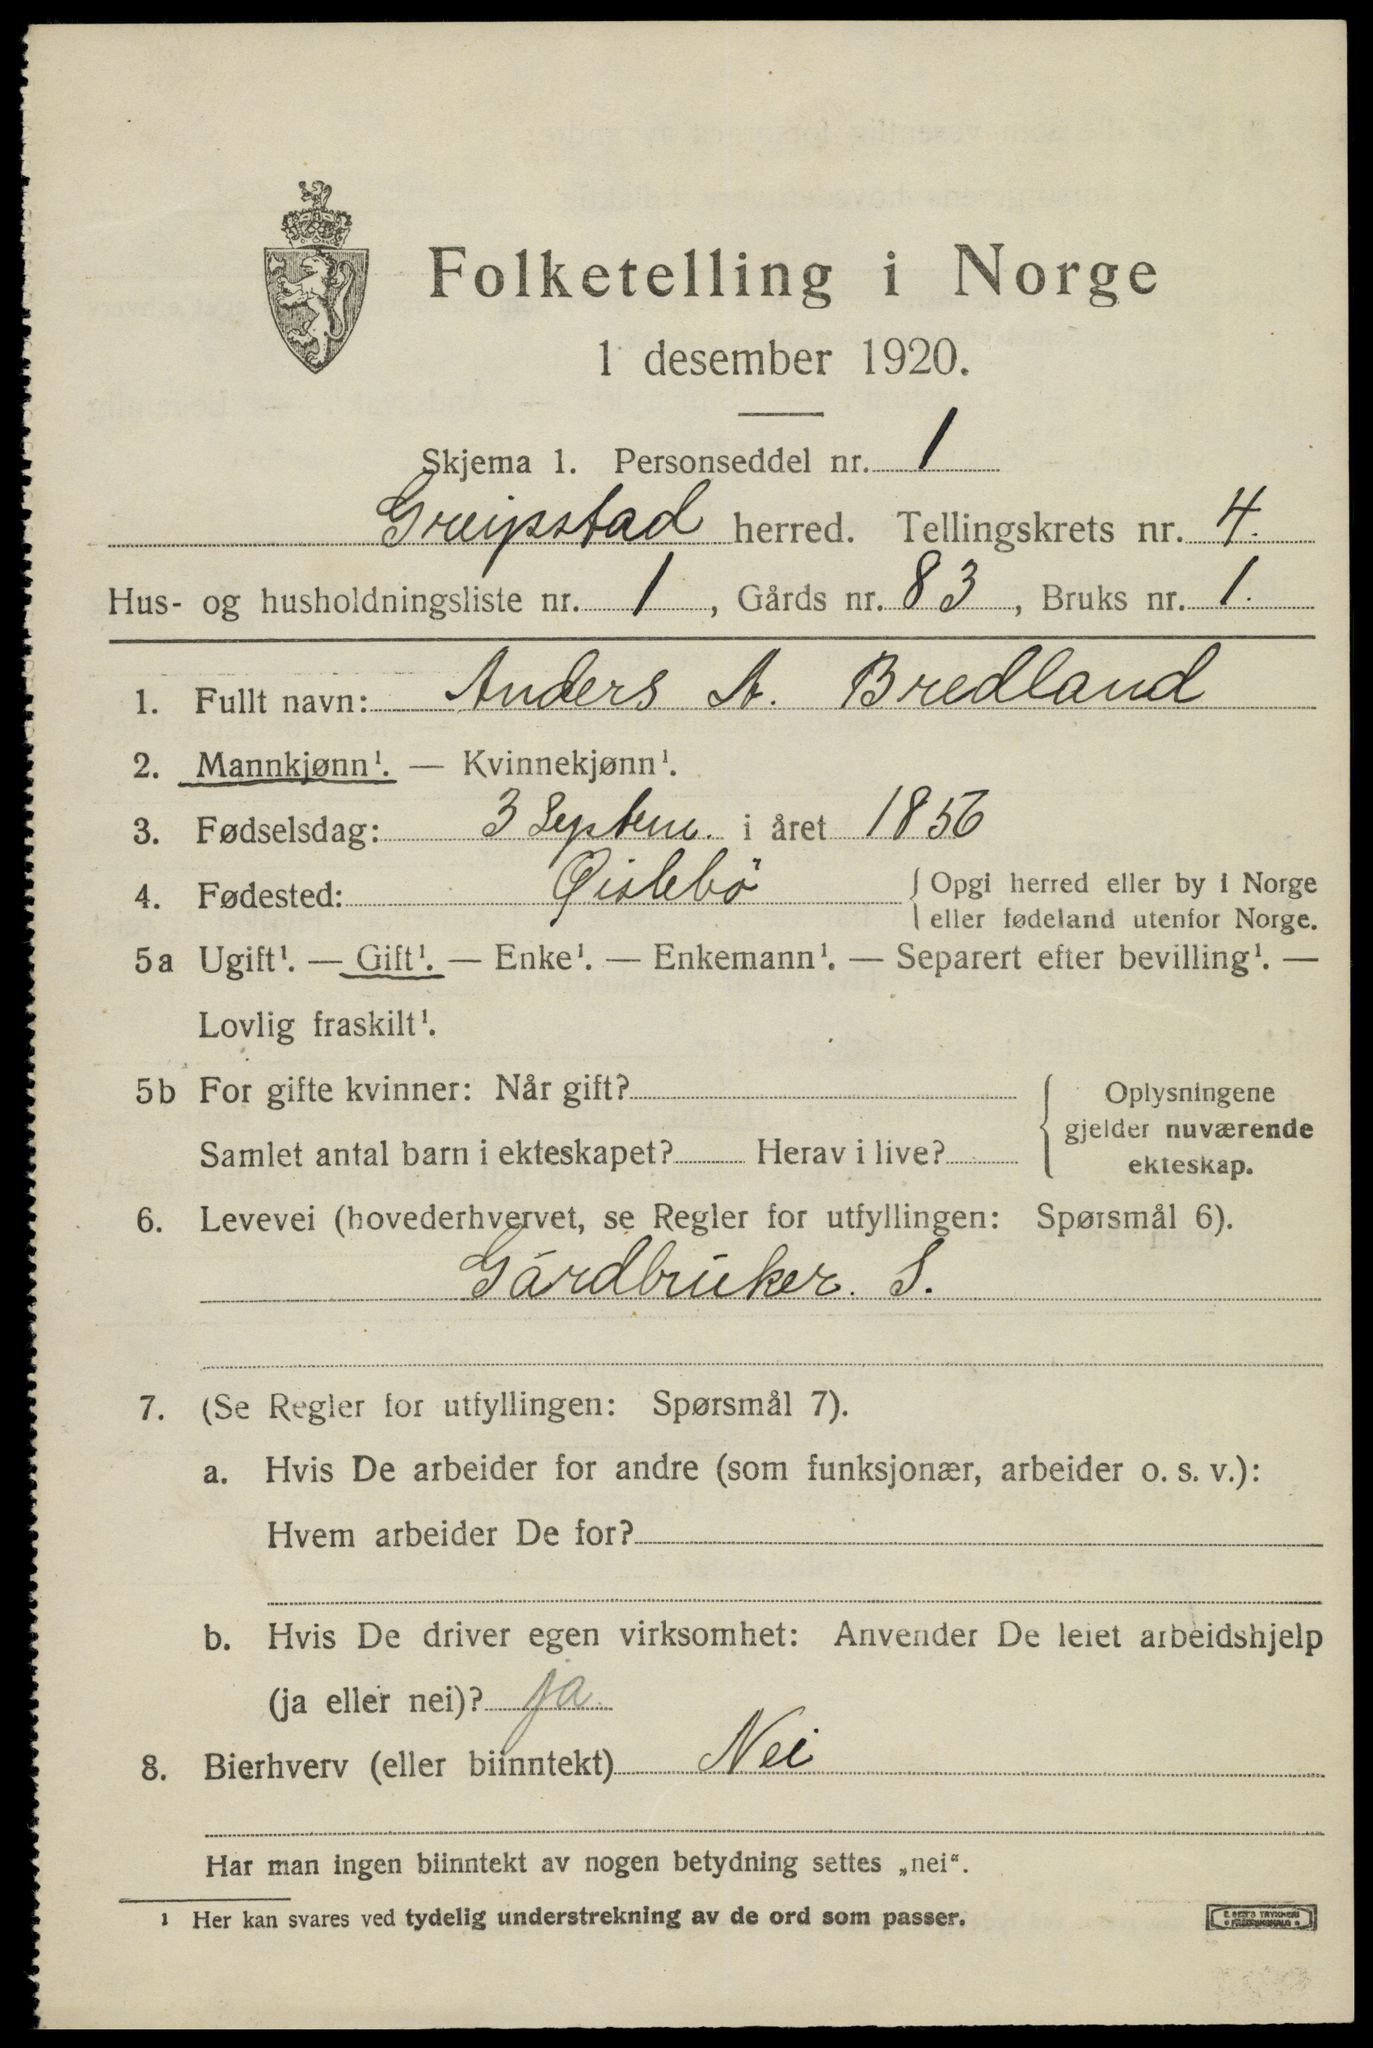 Folketelling i Norge
1 desember 1920.
Skjema 1. Personseddel nr. 1
Greipstad herred. Tellingskrets nr. 4.
Hus- og husholdningsliste nr. 1, Gårds nr. 83, Bruks nr. 1.
1. Fullt navn: Anders A. Bredland
2. Mannkjønn¹. — Kvinnekjønn¹.
3. Fødselsdag: 3 Septem. i året 1856
4. Fødested: Øislebö { Opgi herred eller by i Norge
eller fødeland utenfor Norge.
5a Ugift¹. — Gift¹. — Enke¹. — Enkemann¹. — Separert efter bevilling¹. —
Lovlig fraskilt¹.
5b For gifte kvinner: Når gift? { Oplysningene
gjelder nuværende
Samlet antal barn i ekteskapet? Herav i live? ekteskap.
6. Levevei (hovederhvervet, se Regler for utfyllingen: Spørsmål 6).
Gårdbruker. S.
7. (Se Regler for utfyllingen: Spørsmål 7).
a. Hvis De arbeider for andre (som funksjonær, arbeider o. s. v.):
Hvem arbeider De for?
b. Hvis De driver egen virksomhet: Anvender De leiet arbeidshjelp
(ja eller nei)? ja
8. Bierhverv (eller biinntekt) Nei
Har man ingen biinntekt av nogen betydning settes „nei“.
¹ Her kan svares ved tydelig understrekning av de ord som passer.